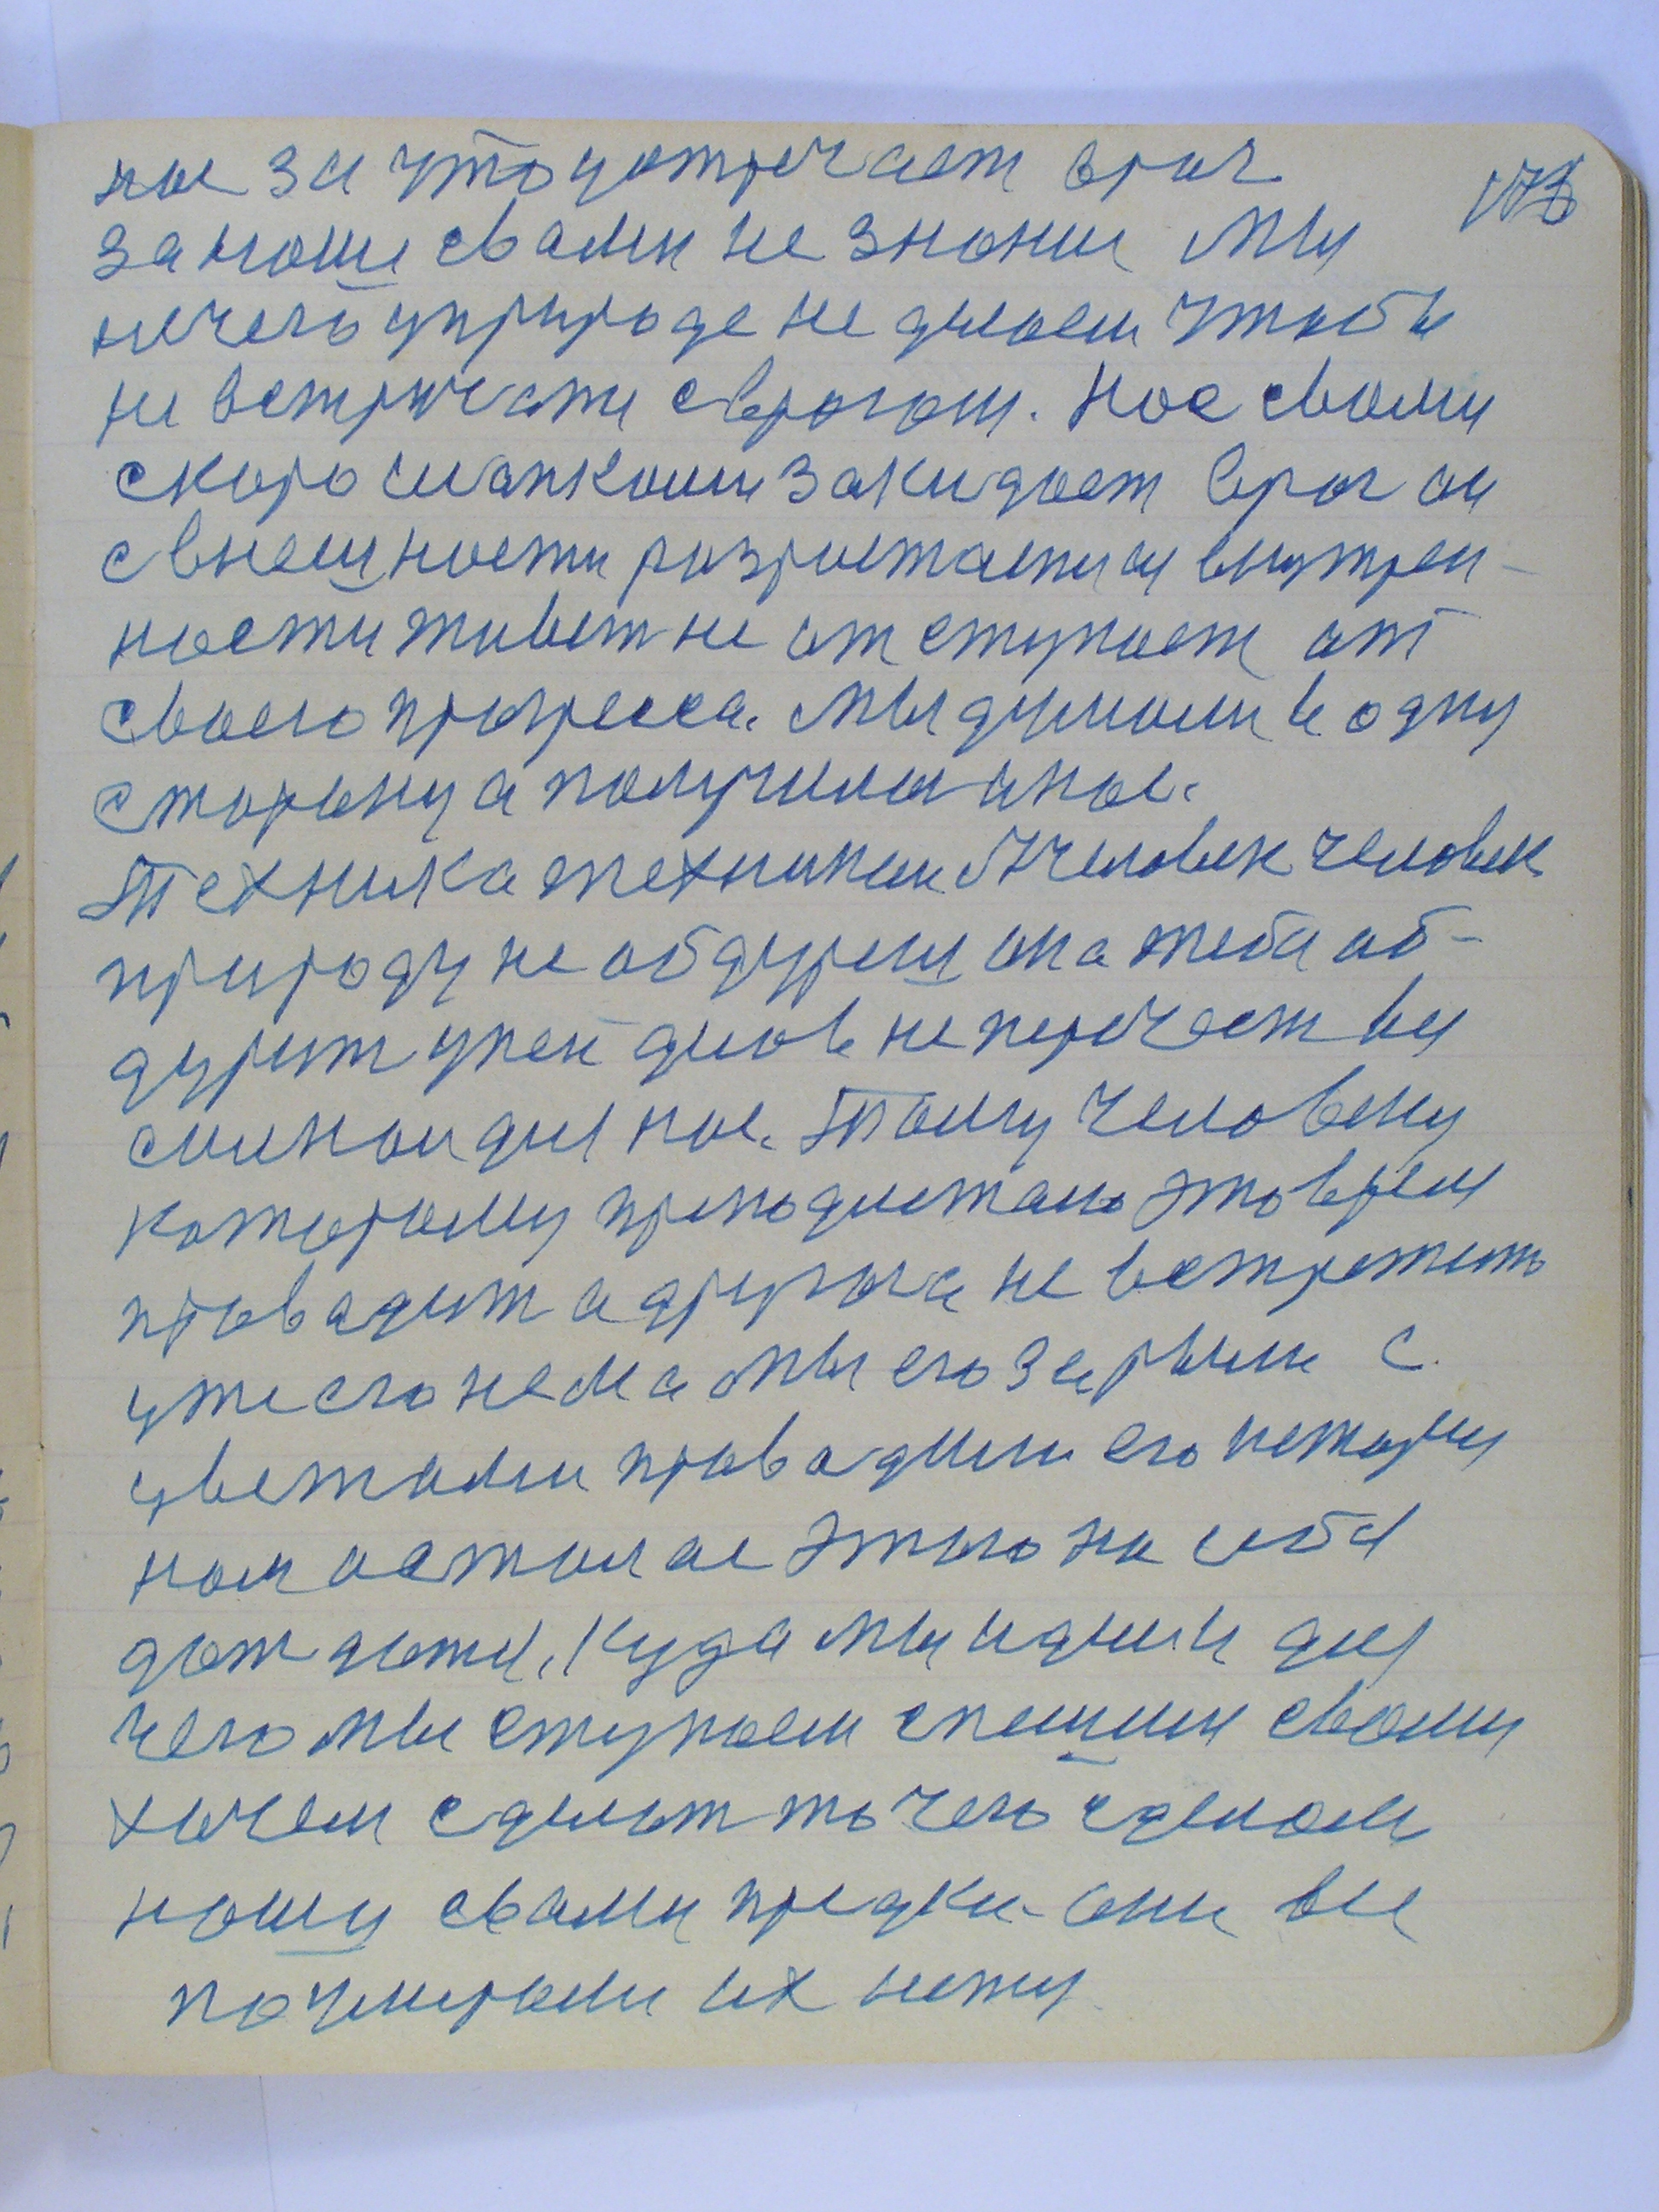 нас за что устречает враг 173
за наши свами не знание Мы
нечего уприроде не делаем чтобы
не встречати сврагом. Нас свами
скоро шапками закидает враг он
свнешности розростается внутрен-
ности живет не отступает от
своего прогресса. Мы думали в одну
сторону а получилось иное.
Техника техникаю А человек человек
природу не обдуриш она тебя об-
дурит уней дилов непочет вся
сила для нас. Тому человеку
которому преподистало это время
проводит а другога не встретить
уже его нема мы его зарыли с
цветами проводили его нету
нам осталос этого на себя
дождатся. Куда мы идем и для
чего мы ступаем спешим свами
хочем сделат то чего сделали
нашы свами предки они все
поумирали их нету